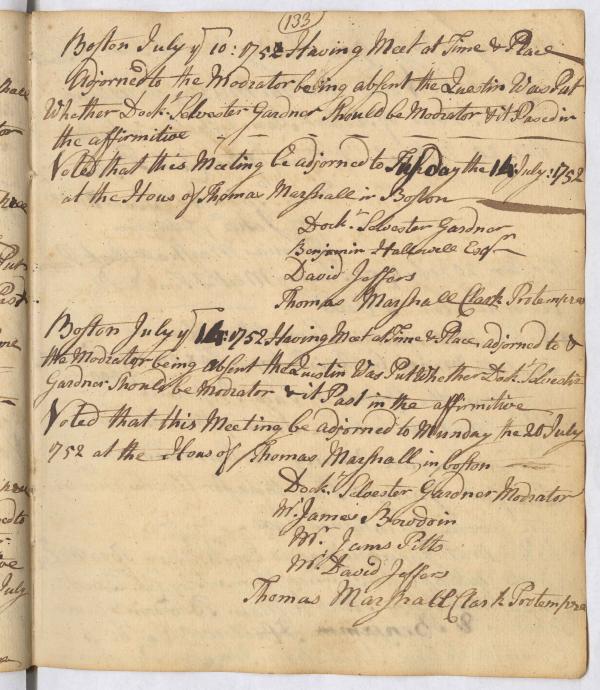 (133)
Boston July ye 10: 1752 Having Meet at Time & Place
Adjorned to the Modrator being absent the Questin Was Put
Whether Dockr Selvester Gardner Should be Modrator & it Pased in
the affirmitive
Voted that this Meeting be adjorned to Tusday the 14 July: 1752
at the Hous of Thomas Marshall in Boston
Dockr Selvester Gardner
Benjamin Hallewell Esqr
David Jeffers
Thomas Marshall Clark Protempra
Boston July ye 14: 1752 Having Meet at Time & Place adjorned to &
the Modrator being absent the Questin Was Put Whether Dockr Selvester
Gardner Should be Modrator & it Past in the affirmitive
Voted that this Meeting be adjorned to Munday the 20 July
1752 at the Hous of Thomas Marshall in boston
Dockr Selvester Gardner Modrator
Mr James Bowdoin
Mr Jams Pitts
Mr David Jeffers
Thomas Marshall Clark Protempra